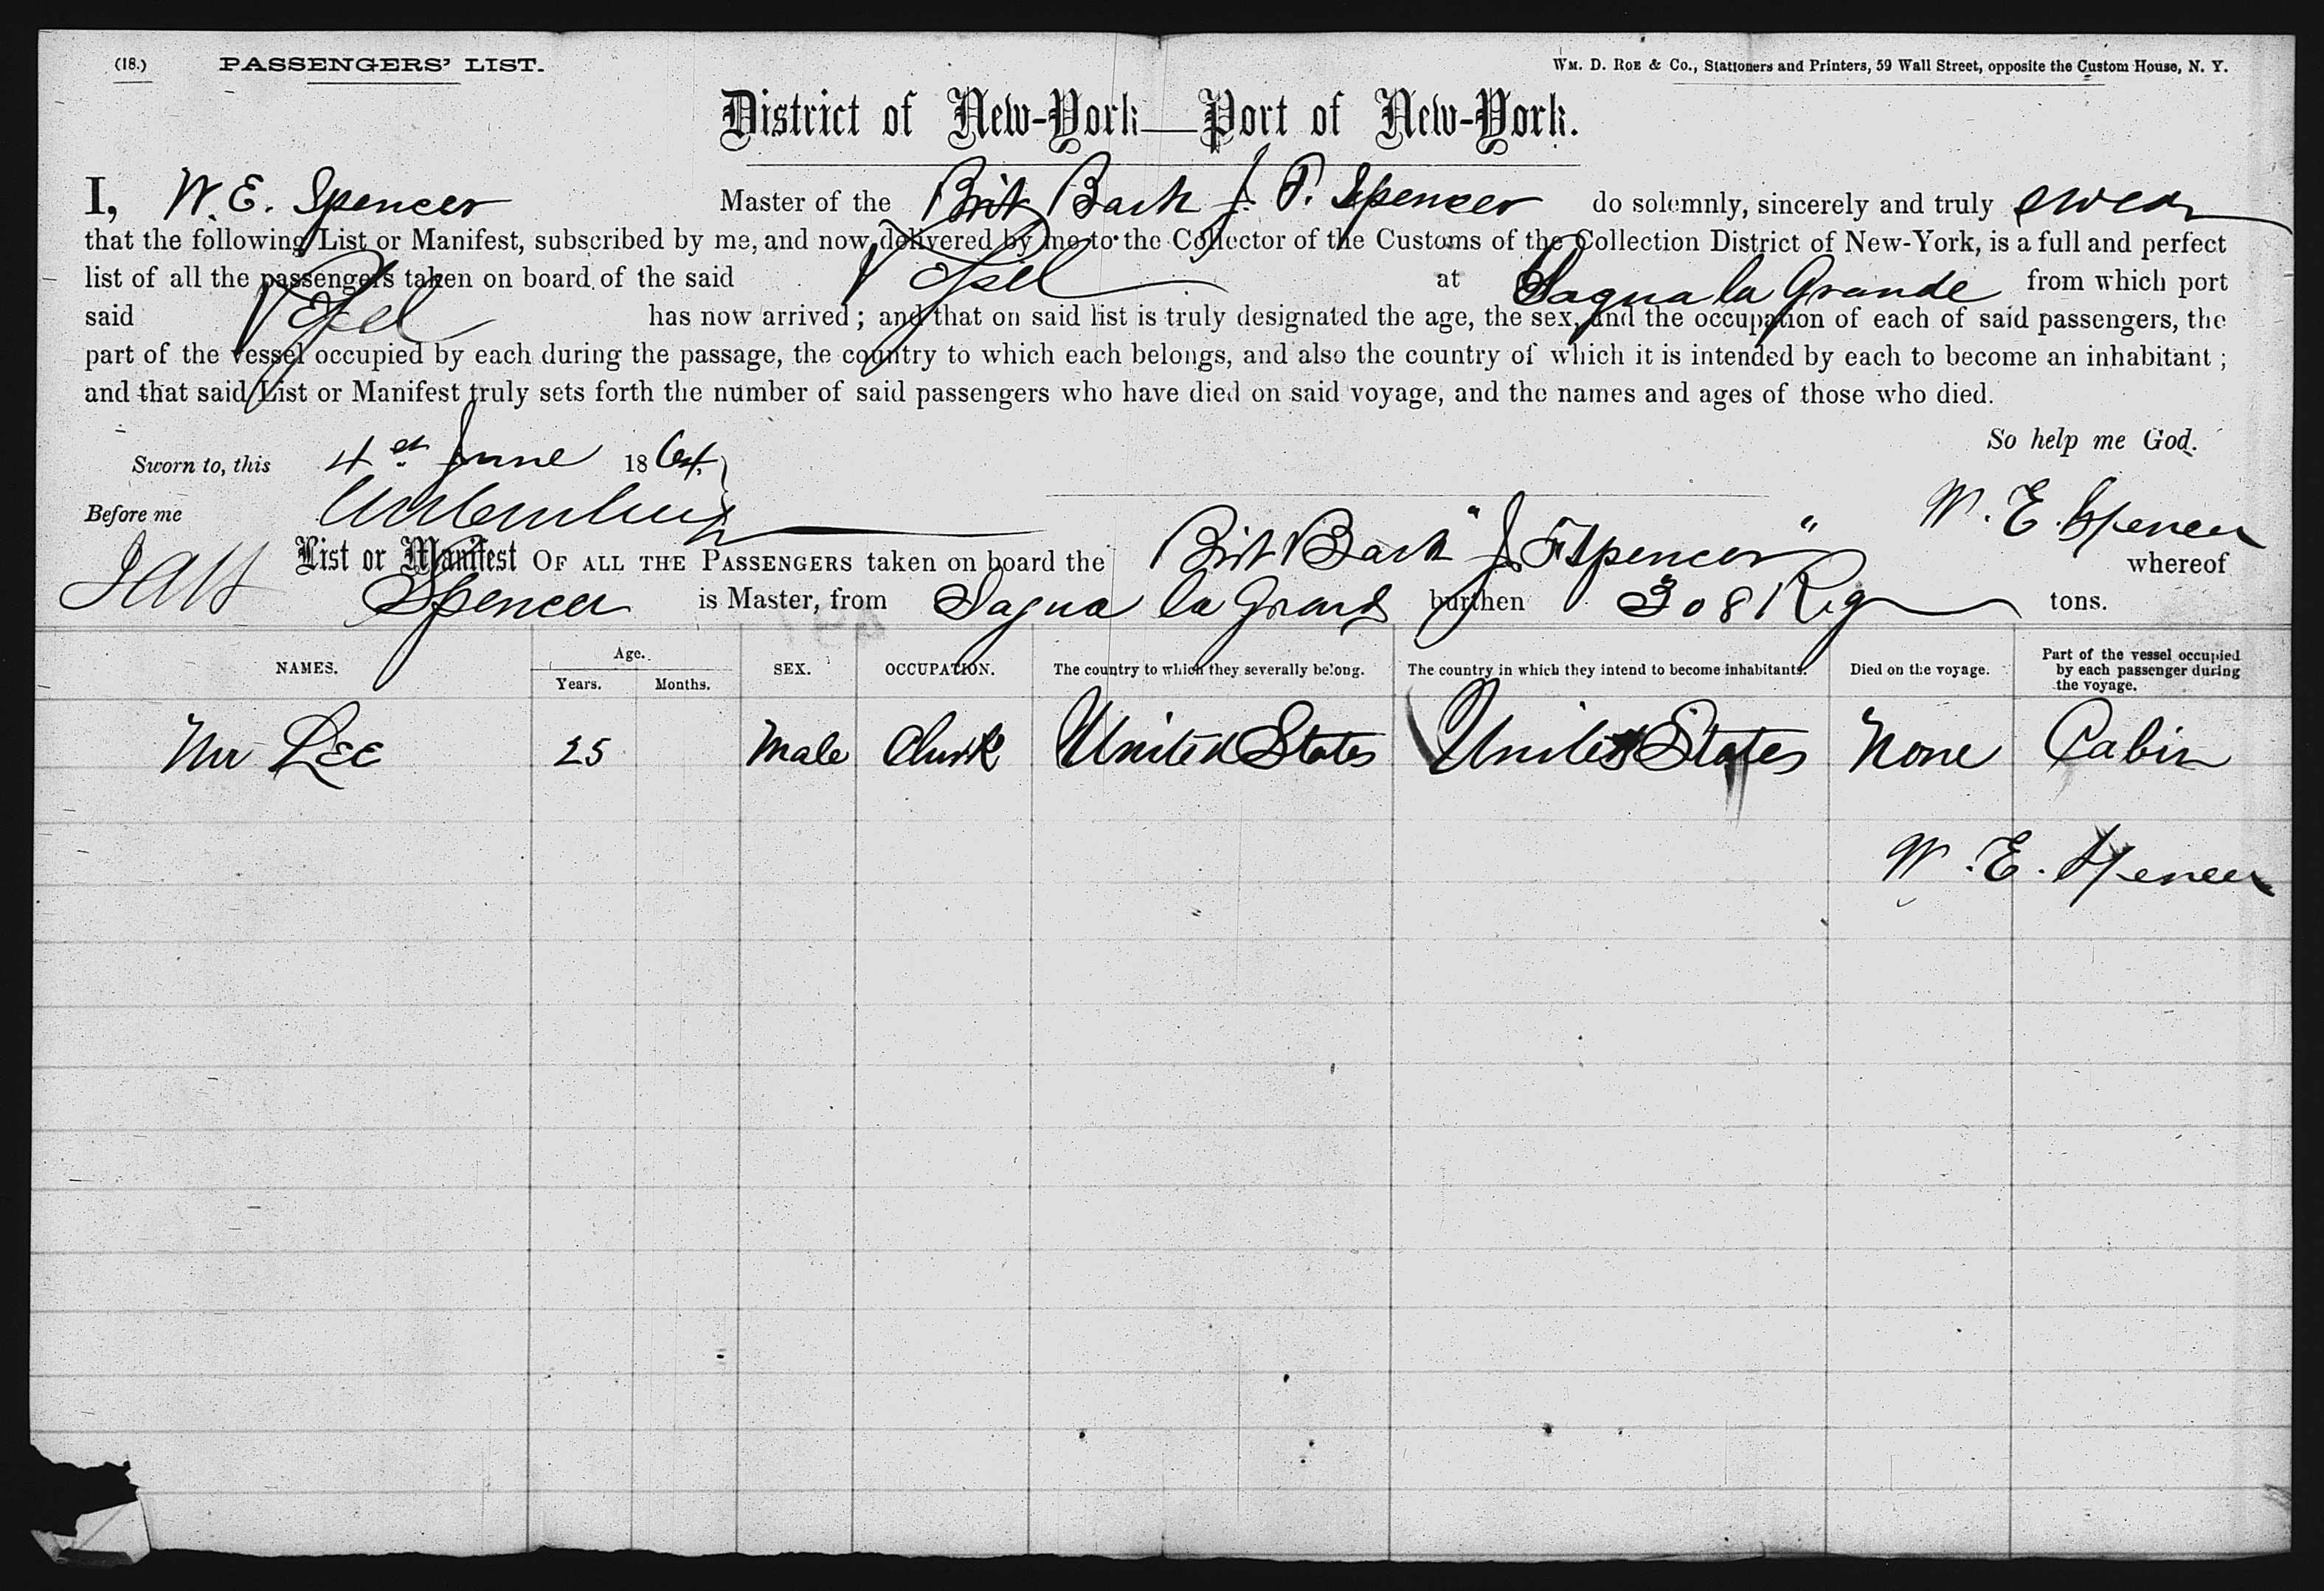 (18.) PASSENGERS' LIST. Wm. D. Roe & Co., Stationers and Printers, 59 Wall Street, opposite the Custom House, N. Y.
District of New-York—Port of New-York.
I, W. E. Spencer Master of the Brit Bark J. F. Spencer do solemnly, sincerely and truly swear
that the following List or Manifest, subscribed by me, and now delivered by me to the Collector of the Customs of the Collection District of New-York, is a full and perfect
list of all the passengers taken on board of the said Vessel at Sagua la Grande from which port
said Vessel has now arrived; and that on said list is truly designated the age, the sex, and the occupation of each of said passengers, the
part of the vessel occupied by each during the passage, the country to which each belongs, and also the country of which it is intended by each to become an inhabitant;
and that said List or Manifest truly sets forth the number of said passengers who have died on said voyage, and the names and ages of those who died.
So help me God.
Sworn to, this 4th June 1864.
Before me W. E. Spencer
List or Manifest OF ALL THE PASSENGERS taken on board the Brit Bark "J. F Spencer" whereof
Spencer is Master, from Sagua la Grand burthen 308 Reg tons.
NAMES. Age. Years. Months. SEX. OCCUPATION. The country to which they severally belong. The country in which they intend to become inhabitants. Died on the voyage. Part of the vessel occupied by each passenger during the voyage.
Mr Lee 25 Male Clerk United States United States None Cabin
W. E. Spencer